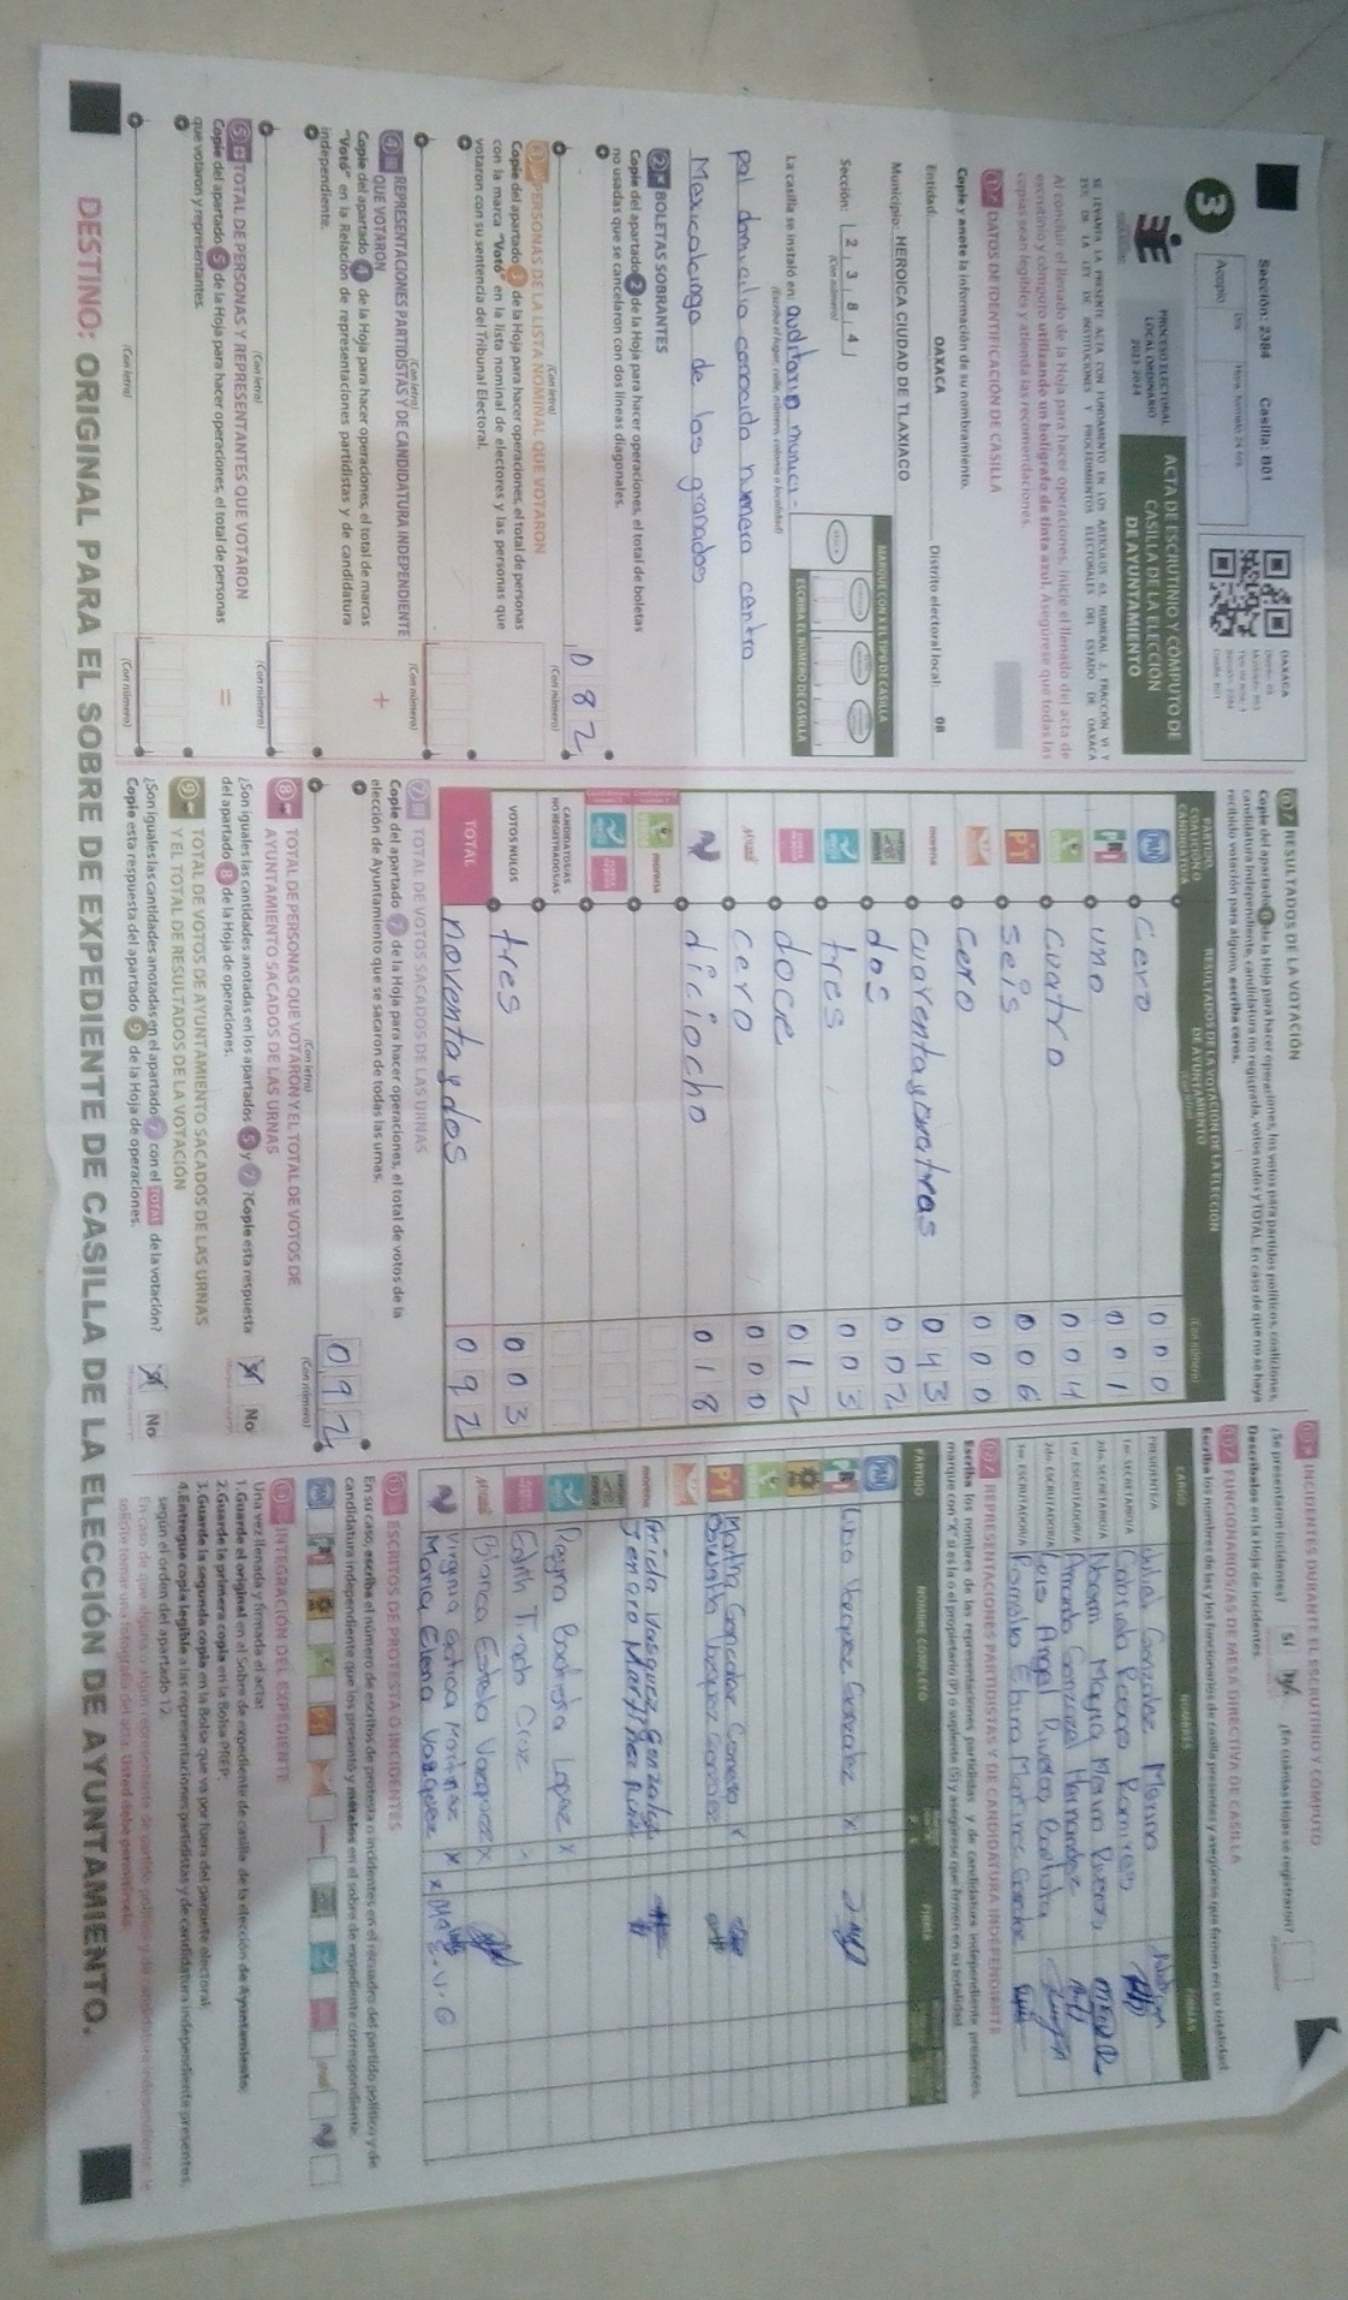 Sección: 2384 Casilla: B01
OAXACA
3
Acopio
PROCESO ELECTORAL
LOCAL ORDINARIO
2023-2024
ACTA DE ESCRUTINIO Y CÓMPUTO DE
CASILLA DE LA ELECCIÓN
DE AYUNTAMIENTO
SE LEVANTA LA PRESENTE ACTA CON FUNDAMENTO EN LOS ARTÍCULOS
DE LA LEY DE INSTITUCIONES Y PROCEDIMIENTOS ELECTORALES DEL ESTADO DE OAXACA
Al concluir el llenado de la Hoja para hacer operaciones, inicie el llenado del acta de
escrutinio y cómputo utilizando un bolígrafo de tinta azul. Asegúrese que todas las
copias sean legibles y atienda las recomendaciones.
1 DATOS DE IDENTIFICACIÓN DE CASILLA
Copie y anote la información de su nombramiento.
Entidad: OAXACA Distrito electoral local: 08
Municipio: HEROICA CIUDAD DE TLAXIACO
Sección: 2 3 8 4
(Con número)
MARQUE CON X EL TIPO DE CASILLA
ESCRIBA EL NÚMERO DE CASILLA
La casilla se instaló en: auditorio munici-
(Escriba el lugar, calle, número, colonia o localidad)
pal domicilio conocido numero centro
Mexicalcingo de los granados
2 BOLETAS SOBRANTES
Copie del apartado 2 de la Hoja para hacer operaciones, el total de boletas
no usadas que se cancelaron con dos líneas diagonales.
0 8 2
(Con letra) (Con número)
3 PERSONAS DE LA LISTA NOMINAL QUE VOTARON
Copie del apartado 3 de la Hoja para hacer operaciones, el total de personas
con la marca "Votó" en la lista nominal de electores y las personas que
votaron con su sentencia del Tribunal Electoral.
(Con letra) (Con número)
4 REPRESENTACIONES PARTIDISTAS Y DE CANDIDATURA INDEPENDIENTE
QUE VOTARON
+
Copie del apartado 4 de la Hoja para hacer operaciones, el total de marcas
"Votó" en la Relación de representaciones partidistas y de candidatura
independiente.
(Con letra) (Con número)
5 TOTAL DE PERSONAS Y REPRESENTANTES QUE VOTARON
=
Copie del apartado 5 de la Hoja para hacer operaciones, el total de personas
que votaron y representantes.
(Con letra) (Con número)
6 RESULTADOS DE LA VOTACIÓN
Copie del apartado 6 de la Hoja para hacer operaciones, los votos para partidos políticos, coaliciones,
candidatura independiente, candidatura no registrada, votos nulos y TOTAL. En caso de que no se haya
recibido votación para alguno, escriba ceros.
PARTIDO, COALICIÓN O CANDIDATO/A
RESULTADOS DE LA VOTACIÓN DE LA ELECCIÓN
DE AYUNTAMIENTO
(Con número)
PAN cero 0 0 0
PRI uno 0 0 1
cuatro 0 0 4
PT seis 0 0 6
cero 0 0 0
morena cuarenta y tres 0 4 3
dos 0 0 2
tres 0 0 3
doce 0 1 2
cero 0 0 0
diciocho 0 1 8
morena
CANDIDATOS/AS
NO REGISTRADOS/AS
VOTOS NULOS tres 0 0 3
TOTAL noventa y dos 0 9 2
7 TOTAL DE VOTOS SACADOS DE LAS URNAS
Copie del apartado 7 de la Hoja para hacer operaciones, el total de votos de la
elección de Ayuntamiento que se sacaron de todas las urnas.
0 9 2
(Con letra) (Con número)
8 TOTAL DE PERSONAS QUE VOTARON Y EL TOTAL DE VOTOS DE
AYUNTAMIENTO SACADOS DE LAS URNAS
¿Son iguales las cantidades anotadas en los apartados 5 y 7? Copie esta respuesta
del apartado 8 de la Hoja de operaciones.
No
9 TOTAL DE VOTOS DE AYUNTAMIENTO SACADOS DE LAS URNAS
Y EL TOTAL DE RESULTADOS DE LA VOTACIÓN
¿Son iguales las cantidades anotadas en el apartado 7 con el TOTAL de la votación?
Copie esta respuesta del apartado 9 de la Hoja de operaciones.
No
INCIDENTES DURANTE EL ESCRUTINIO Y CÓMPUTO
¿Se presentaron incidentes? Sí No ¿En cuántas Hojas se registraron?
Descríbalos en la Hoja de Incidentes.
FUNCIONARIOS/AS DE MESA DIRECTIVA DE CASILLA
Escriba los nombres de las y los funcionarios de casilla presentes y asegúrese que firmen en su totalidad.
CARGO NOMBRES FIRMAS
PRESIDENTE/A Gonzalez Merino
1er. SECRETARIO/A Gabriela Ramires
2do. SECRETARIO/A Noemi
1er. ESCRUTADOR/A Amanda Gonzalez Hernandez
2do. ESCRUTADOR/A Luis Angel
3er. ESCRUTADOR/A
REPRESENTACIONES PARTIDISTAS Y DE CANDIDATURA INDEPENDIENTE
Escriba los nombres de las representaciones partidistas y de candidatura independiente presentes,
marque con "X" si es la o el propietario (P) o suplente (S) y asegúrese que firmen en su totalidad.
PARTIDO NOMBRE COMPLETO FIRMA
PAN
PRI Vasquez Gonzalez X
PT Martha X
Vasquez Gonzalez
morena Frida Vasquez Gonzalez
Jenaro Martinez
Bautista Lopez X
Edith Cruz
Blanca Estela Vazquez X
Virginia Martinez X
Maria Elena Vasquez X
ESCRITOS DE PROTESTA O INCIDENTES
En su caso, escriba el número de escritos de protesta o incidentes en el recuadro del partido político y de
candidatura independiente que los presentó y métalos en el sobre de expediente correspondiente.
INTEGRACIÓN DEL EXPEDIENTE
Una vez llenada y firmada el acta:
1. Guarde el original en el Sobre de expediente de casilla de la elección de Ayuntamiento;
2. Guarde la primera copia en la Bolsa PREP.
3. Guarde la segunda copia en la Bolsa que va por fuera del paquete electoral.
4. Entregue copia legible a las representaciones partidistas y de candidatura independiente presentes,
según el orden del apartado 12.
DESTINO: ORIGINAL PARA EL SOBRE DE EXPEDIENTE DE CASILLA DE LA ELECCIÓN DE AYUNTAMIENTO.